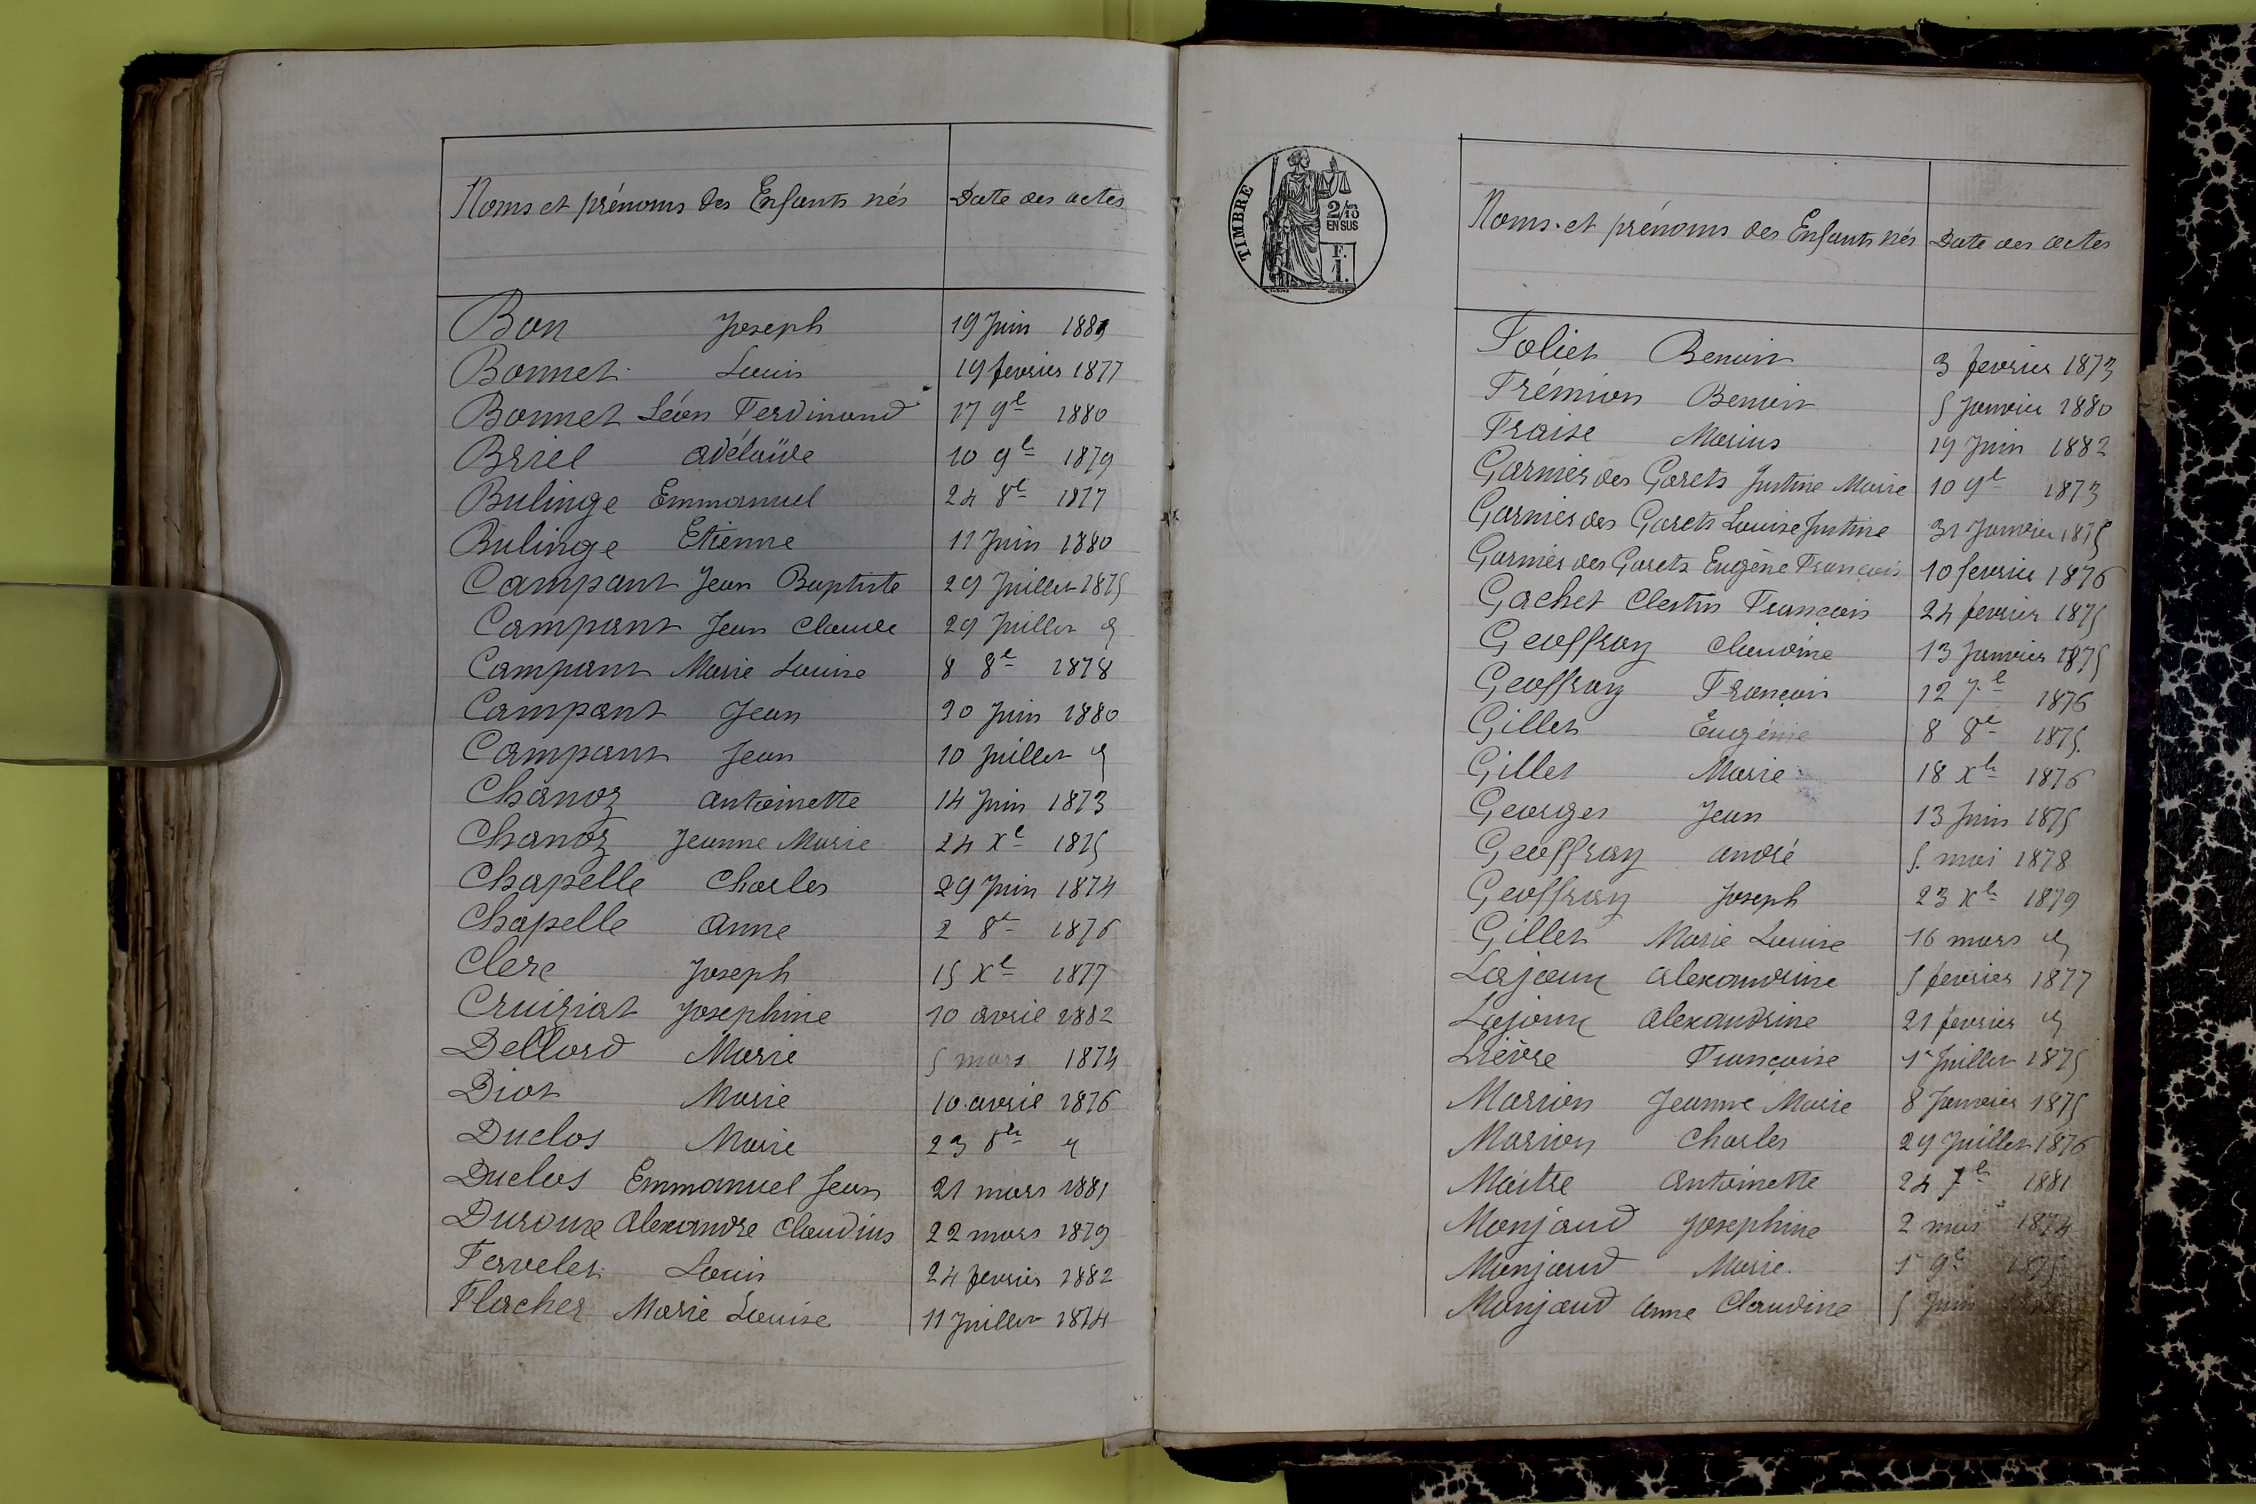 Noms et prénoms des Enfants nés Date des actes
Bon Joseph 19 Juin 1881
Bonnet Louis 19 fevrier 1877
Bonnet Léon Ferdinand 17 9e 1880
Briel adélaïde 10 9e 1879
Bulinge Emmanuel 24 8e 1877
Bulinge Etienne 11 Juin 1880
Campant Jean Baptiste 29 Juillet 1875
Campant Jean Claude 29 Juillet
Campant Marie Louise 8 8e 1878
Campant Jean 20 Juin 1880
Campant Jean 10 Juillet
Chanoz antoinette 14 Juin 1873
Chanoz Jeanne Marie 24 Xe 1875
Chapelle Charles 29 Juin 1874
Chapelle anne 2 8e 1876
Clerc Joseph 15 Xe 1877
Cruiziat Josephine 10 avril 1882
Dellard Marie 5 mars 1874
Diot Marie 10 avril 1876
Duclos Marie 23 8e
Duclos Emmanuel Jean 21 mars 1881
Duroux alexandre Claudius 22 mars 1879
Fervelet Louis 24 fevrier 1882
Flachet Marie Louise 11 Juillet 1874
TIMBRE
2/10
EN SUS
F.
1.
Noms et prénoms des Enfants nés Date des actes
Foliet Benoit 3 fevrier 1873
Frémion Benoit 5 Janvier 1880
Fraise Marius 19 Juin 1882
Garnier des Garets Justine Marie 10 9e 1873
Garnier des Garets Louise Justine 31 Janvier 1875
Garnier des Garets Eugène François 10 fevrier 1876
Gachet Clestin François 24 fevrier 1875
Geoffray Claudine 13 Janvier 1875
Geoffray François 12 7e 1876
Gillet Eugénie 8 8e 1875
Gillet Marie 18 Xe 1876
Georges Jean 13 Juin 1875
Geoffray andré 5 mai 1878
Geoffray Joseph 23 Xe 1879
Gillet Marie Louise 16 mars
Lajoux alexandrine 5 fevrier 1877
Lajoux alexandrine 21 février
Lièvre Françoise 1r Juillet 1875
Marion Jeanne Marie 8 Janvier 1875
Marion Charles 29 Juillet 1876
Maitre antoinette 24 7e 1881
Monjaud Josephine 2 mai 1874
Monjaud Marie 1r 9e
Monjaud anne Claudine 5 Juin